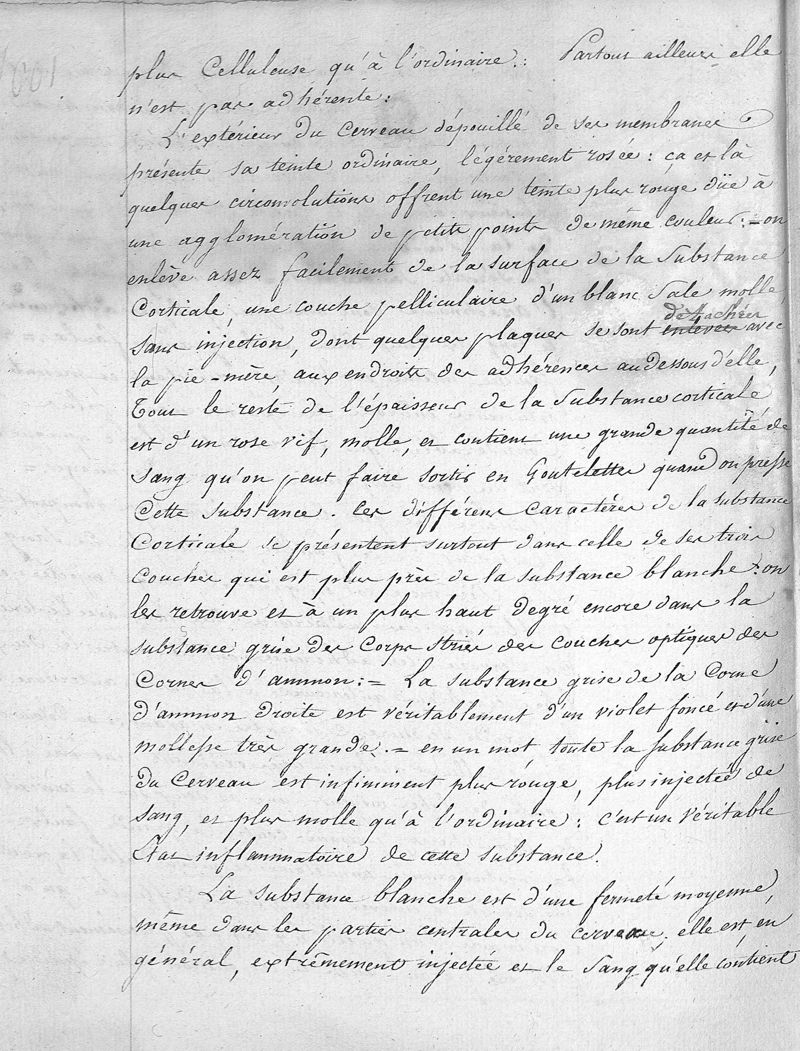 plus Celluleuse qu'à l'ordinaire.: Partout ailleurs elle
n'est pas adhérente:
L'extérieur du Cerveau dépouillé de ses membranes
présente sa teinte ordinaire, légérement rosée: ça et là
quelques circonvolutions offrent une teinte plus rouge düe à
une agglomération de petits points de même couleur: = on
enlève assez facilement de la surface de la Substance
Corticale, une couche pelliculaire d'un blanc Sale molle
détachées
Sans injection, dont quelques plaques se sont enlevées avec
la pie-mère, aux endroits des adhérences audessous d'elle,
Tout le reste de l'épaisseur de la Substance corticale
est d'un rose vif, molle, et contient une grande quantité de
Sang qu'on peut faire sortir en Goutelettes quand on presse
Cette Substance. Ces différens Caractères de la substance
Corticale se présentent surtout dans celle de ses trois
Couches qui est plus près de la substance blanche: on
les retrouve et à un plus haut degré encore dans la
substance grise des Corps striés des couches optiques des
Cornes d'ammon: = La substance grise de la Corne
d'ammon droite est véritablement d'un violet foncé et d'une
mollesse très grande. = en un mot toute la Substance grise
du Cerveau est infiniment plus rouge, plus injectée de
Sang, et plus molle qu'à l'ordinaire: c'est un véritable
Etat inflammatoire de cette substance.
La substance blanche est d'une fermeté moyenne,
même dans les parties centrales du cerveau; elle est, en
général, extrêmement injectée et le Sang qu'elle contient